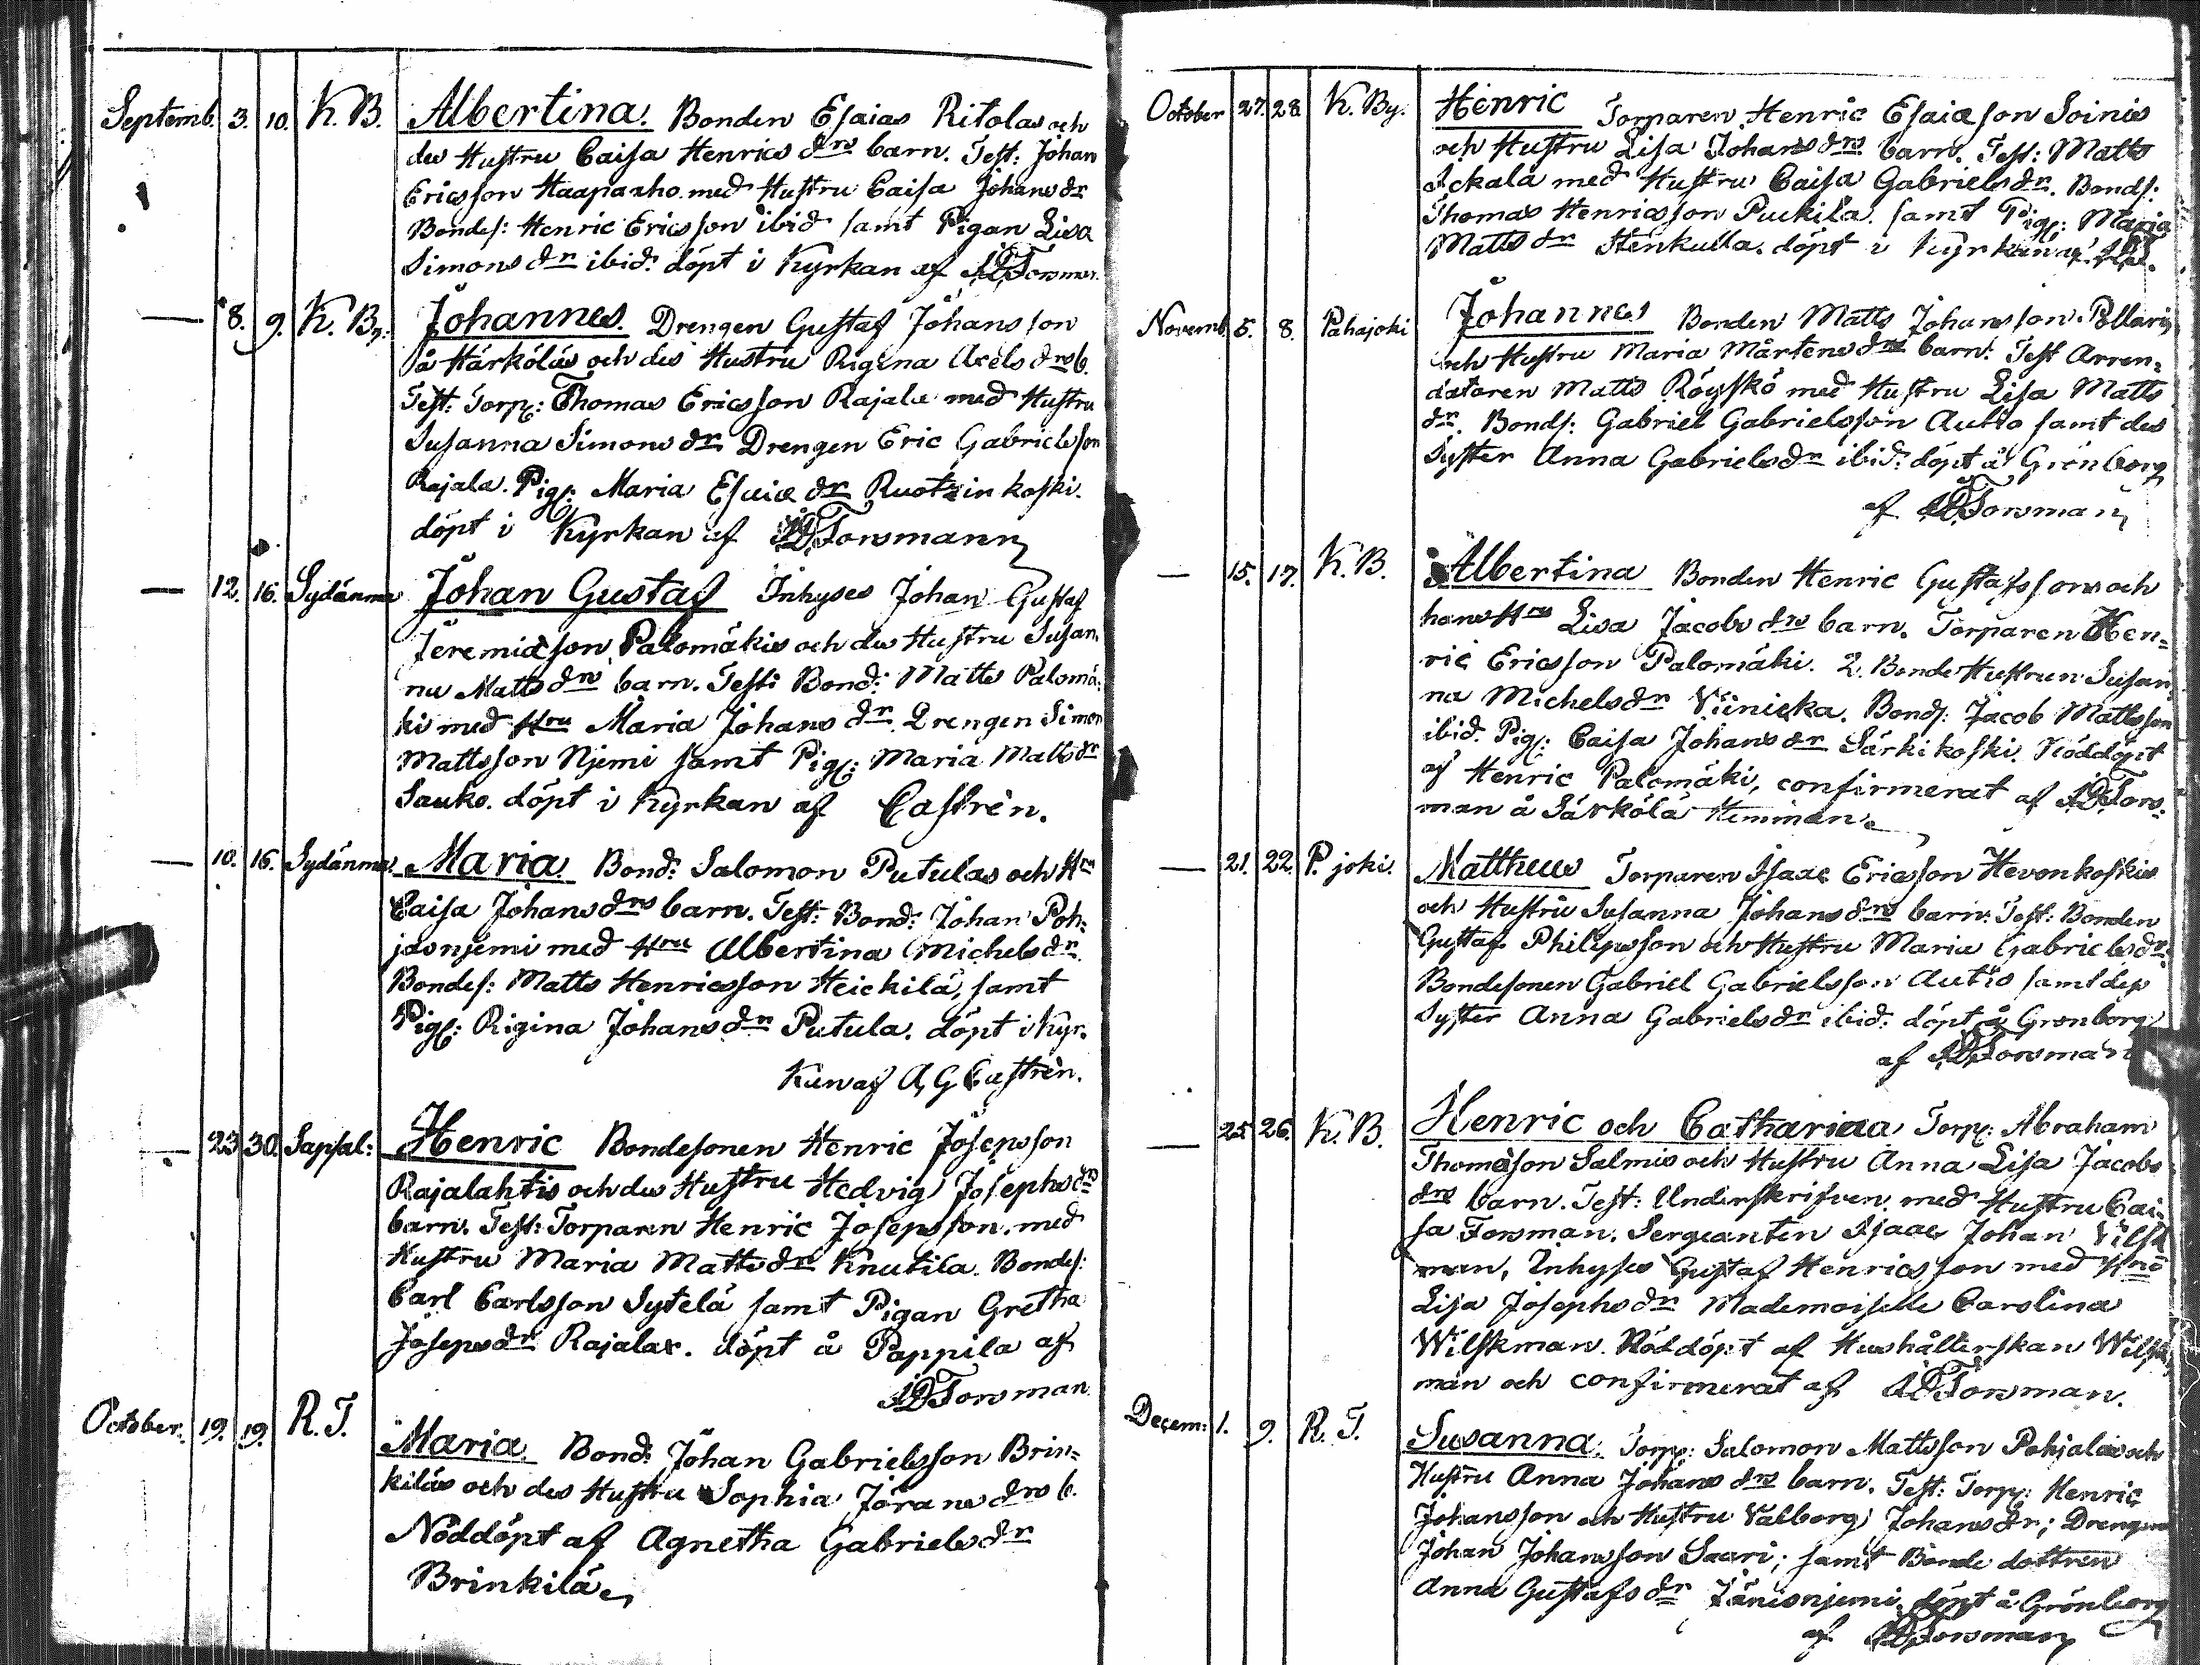 Septemb. 3. 10. K. B. Albertina. Bonden Esaias Ritolas och
des Hustru Caisa Henrics drs barn. Test: Johan
Ericsson Haapaxho med Hustru Caisa Johans dr
Bondes: Henric Ericsson ibid samt Pigan Lisa
Simons dr ibid: döpt i Kyrkan af Forsman.
— 8. 9. K. By. Johannes. Drengen Gustaf Johansson
å Härköläs och des Hustru Rigina Axels drs b.
Test: Torp: Thomas Ericsson Rajala med Hustru
Susanna Simons dr Drengen Eric Gabrielsson
Rajala. Pig: Maria Esaiæ dr Ruotzin koski.
döpt i Kyrkan af Forsmann
— 12. 16. Sydänma Johan Gustaf Inhyses Johan Gustaf
Jeremiæson Palomäkis och des Hustru Susan,
na Matts drs barn. Test: Bond: Matts Palomä,
ki med Hru Maria Johans dr. Drengen Simon
Mattsson Njemi samt Pig: Maria Matts dr
Sauko. döpt i Kyrkan af Castrèn.
— 10. 16. Sydänma. Maria Bond: Salomon Putulas och Hru
Caisa Johans drs barn. Test: Bond: Johan Poh,
jasnjemi med Hru Albertina Michels dr.
Bondes: Matts Henricsson Heickilä, samt
Pig: Rigina Johans dr Putula. döpt i Kyr.
kan af A, G Castrèn.
— 23 30. Sapsal: Henric Bondesonen Henric Josepsson
Rajalahtis och des Hustru Hedvig Josephs drs
barn. Test: Torparen Henric Josepsson. med
Hustru Maria Matts dr Knutila. Bondes:
Carl Carlsson Sytelä samt Pigan Gretha
Joseps dr Rajalax. döpt å Pappila af
Forsman.
October. 19. 19. R. T. Maria. Bond: Johan Gabrielsson Brin=
kiläs och des Hustru Sophia Jörans drs b.
Nöddöpt af Agnetha Gabriels dr
Brinkilä
October 27. 28. K. By. Henric Torparen Henric Esaiæson Soinis
och Hustru Lisa Johans drs barn. Test: Matts
Ackala med Hustru Caisa Gabriels dr. Bonds:
Thomas Henricsson Puckila. samt Pig: Maria
Matts dr Henkulla. döpt i Kyrkan af
Novemb. 5. 8. Pahajoki Johannes Bonden Matts Johansson Pollaris
och Hustru Maria Mårtens drs barn: Test Arren=
datoren Matts Röyskö med Hustru Lisa Matts
dr. Bonds: Gabriel Gabrielsson Autio samt des
Syster Anna Gabriels dr ibid: döpt å Grönborg
af Forsman
— 15. 17. K. B. Albertina Bonden Henric Gustafssons och
hans Hrus Lisa Jacobs drs barn. Torparen Hen=
ric Ericsson Palomäki. 2. Bonde Hustrun Susan
na Michels dr Viinicka. Bonds: Jacob Mattsson
ibid. Pig: Caisa Johans dr Särkikoski. Nöddöpt
af Henric Palomäki, confirmerat af Fors:
man å Särkölä Hemman.
— 21. 22. P. joki. Mattheus Torparen Isaac Ericsson Hevonkoskis
och Hustru Susanna Johans drs barn: Test: Bonden
Gustaf Philipsson och Hustru Maria Gabriels dr.
Bondesonen Gabriel Gabrielsson Autio samt des
Syster Anna Gabriels dr ibid: döpt å Grönborg
af Forsman
— 25 26. K. B. Henric och Catharina Torp: Abraham
Thomæson Salmis och Hustru Anna Lisa Jacobs
drs barn. Test: Underskrifven. med Hustru Cai=
sa Forsman. Sergeanten Isaac Johan Vilsk
man, Inhyses Gustaf Henricsson med Hru
Lisa Josephs dr Mademoiselle Carolina
Wilskman. Nöddöpt af Hushållerskan Wilsk
man och confirmerat af Forsman.
Decem: 1. 9. R. T. Susanna. Torp: Salomon Mattsson Pohjalas och
Hustru Anna Johans drs barn. Test: Torp: Henric
Johansson och Hustru Valborg Johans dr; Drengen
Johan Johansson Saari; samt Bonde dottren
Anna Gustafs dr Jänisnjemi. döpt å Grönborg
af Forsman